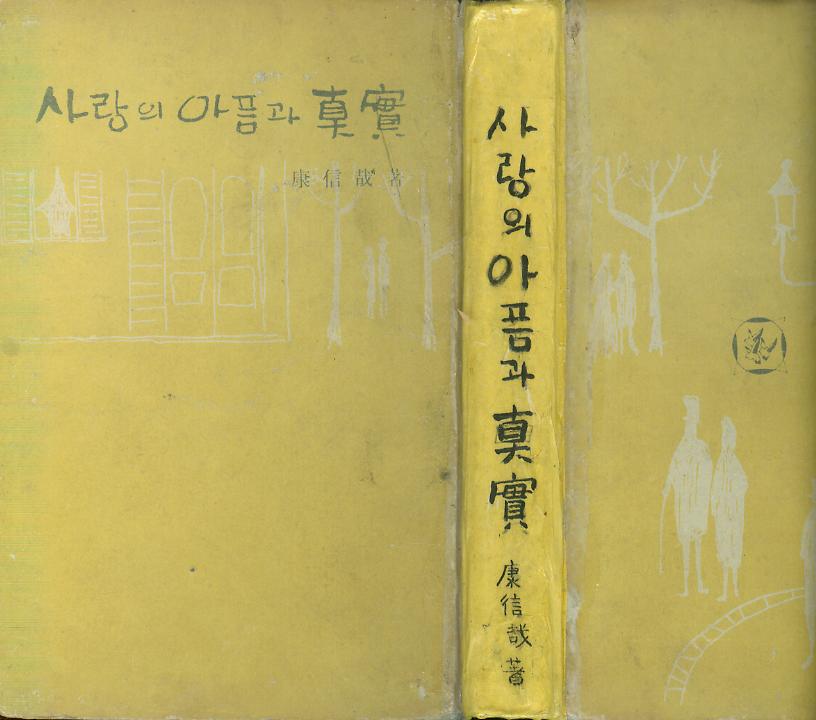 사랑의 아픔과 眞實
康信哉 著
사랑의 아픔과 眞實
康信哉 著